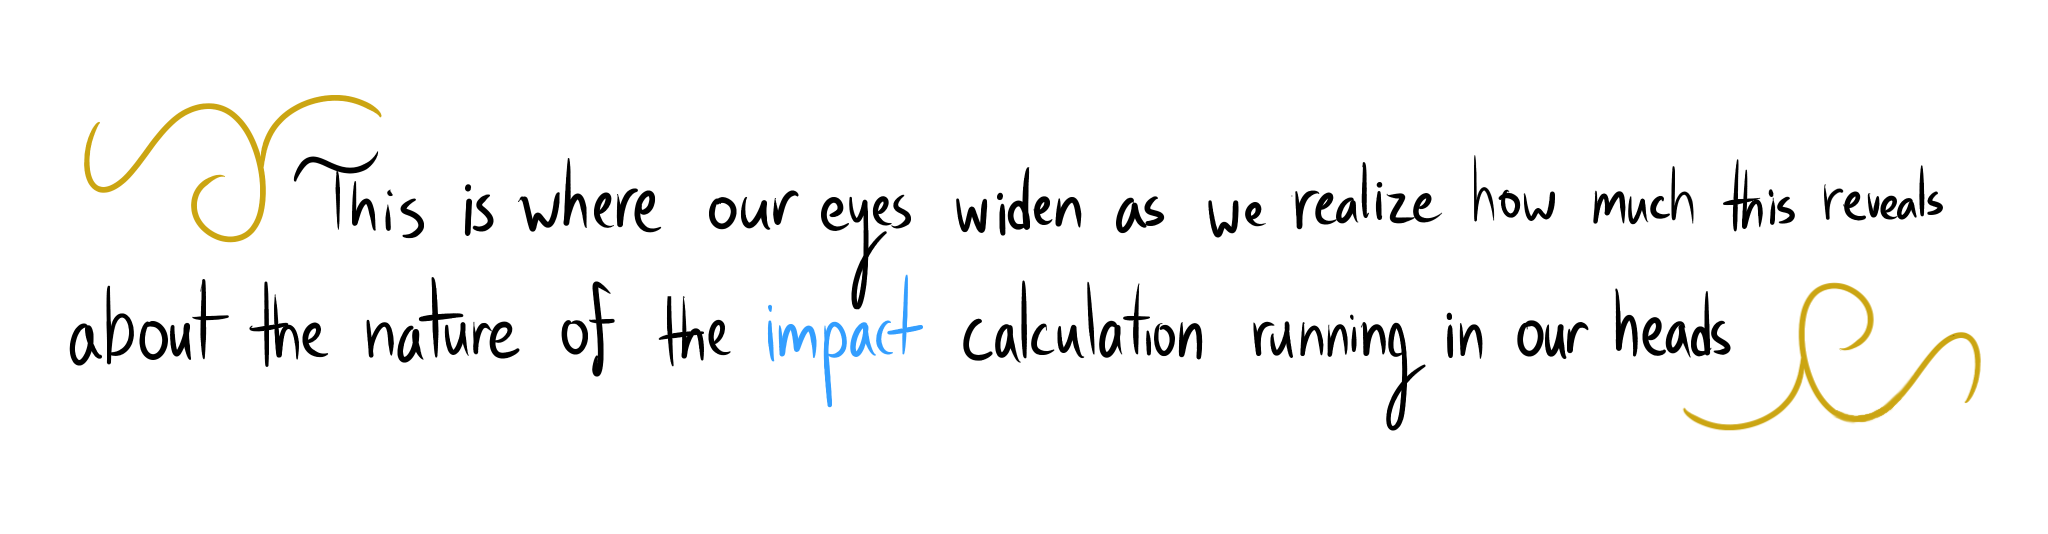 This is where our eyes widen as we realize how much this reveals
about the nature of the impact calculation running in our heads